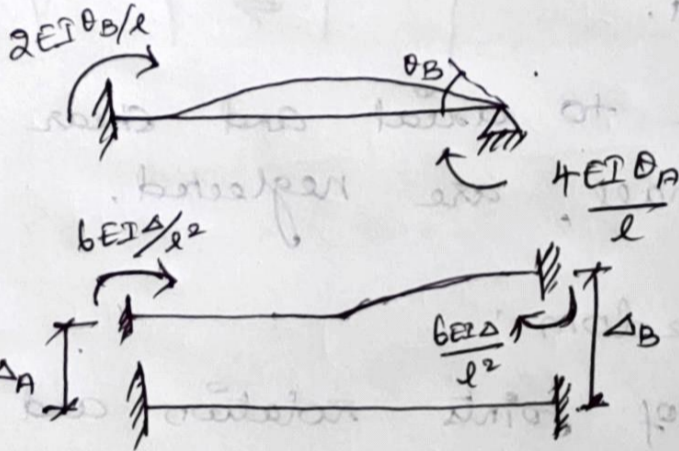 2EIθB/l
θB
4EIθA/l
6EIΔ/l²
6EIΔ/l²
ΔB
ΔA